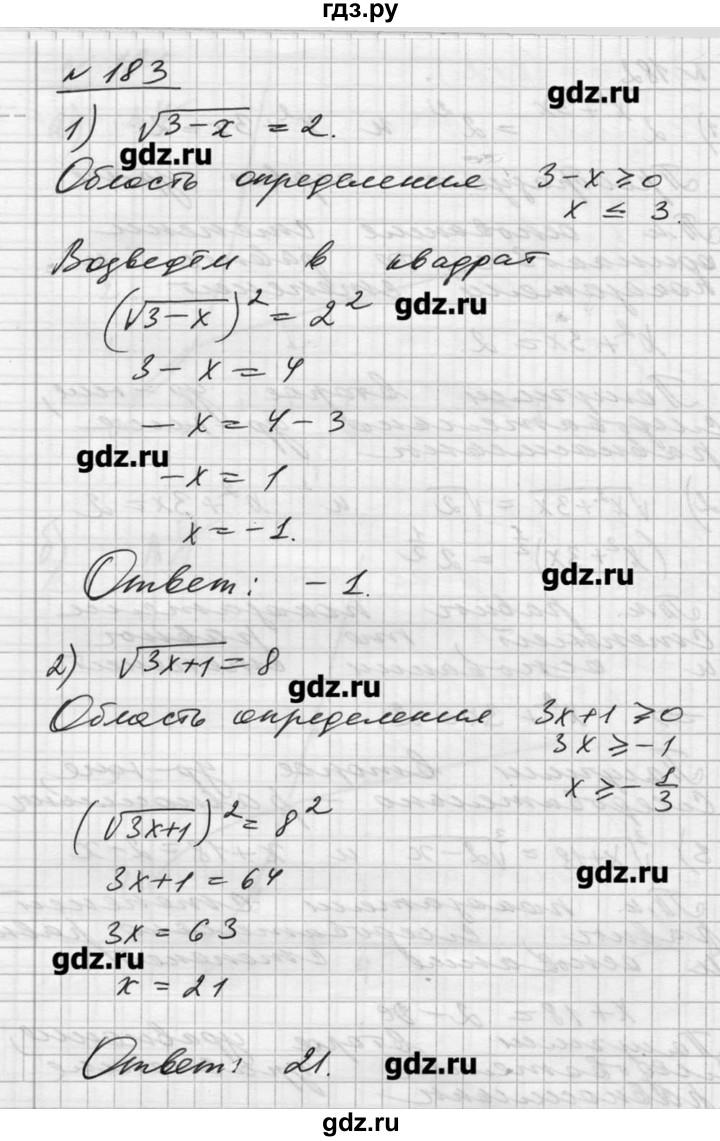 гдз.ру
№ 183
gdz.ru
1) √(3-x) = 2.
gdz.ru
Область определения 3-x ≥ 0
x ≤ 3.
Возведём в квадрат
gdz.ru
(√(3-x))² = 2²
3 - x = 4
- x = 4 - 3
gdz.ru
-x = 1
x = -1.
Ответ: -1.
gdz.ru
2) √(3x+1) = 8
gdz.ru
Область определения 3x+1 ≥ 0
3x ≥ -1
x ≥ -1/3
(√(3x+1))² = 8²
gdz.ru
3x+1 = 64
3x = 63
gdz.ru
x = 21
Ответ: 21.
gdz.ru
gdz.ru